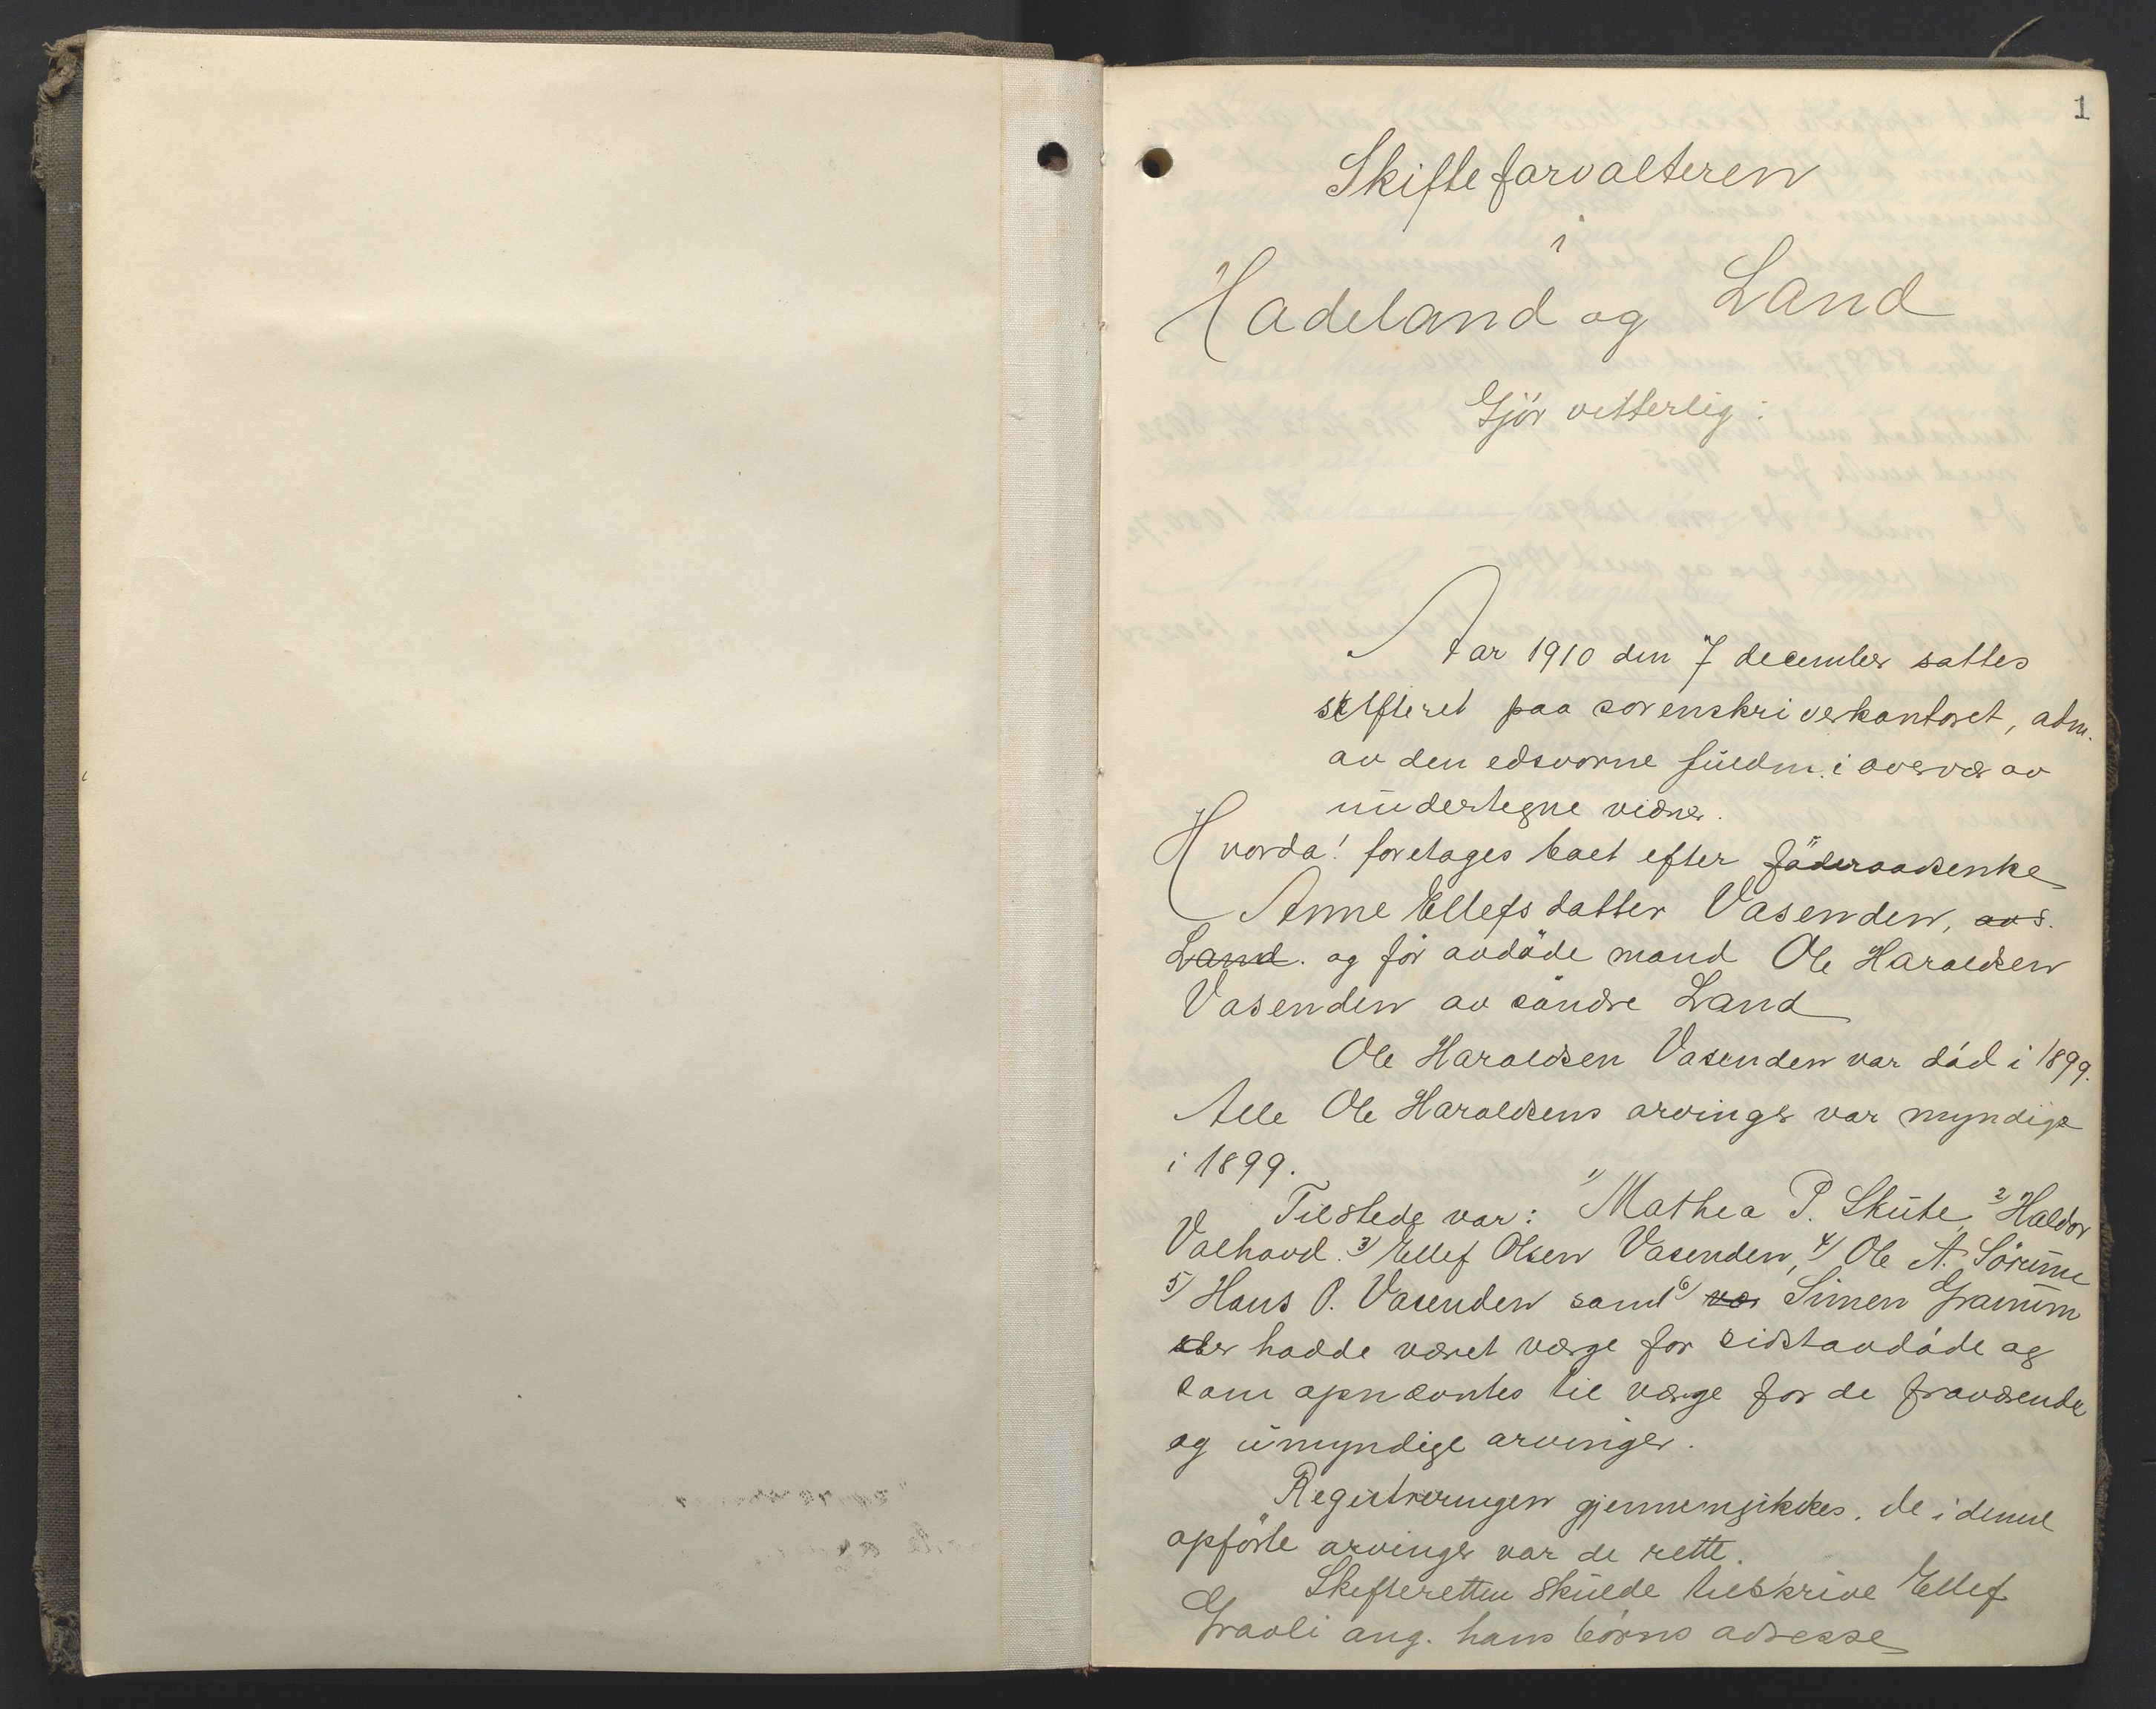 1
Skifteforvalteren
i
Hadeland og Land
Gjör vitterlig:
Aar 1910 den 7 december sattes
skifteret paa sorenskriverkontoret, adm.
av den edsvorne fuldm. i overvær av
undertegne vidner.
Hvorda! foretages boet efter föderaadsenke
Anne Ellefsdatter Vasenden, av S.
Land. og før avdöde mand Ole Haraldsen
Vasenden av söndre Land
Ole Haraldsen Vasenden var död i 1899.
Alle Ole Haraldsens arvinger var myndige
i 1899.
Tilstede var: 1) Mathea P. Skute, 2) Haldor
Valhovd. 3) Ellef Olsen Vasenden, 4) Ole A. Sörumn
5) Hans P. Vasenden samt 6) Simen Framum
der hadde været værge for sidstavdöde og
som opnævntes til værge for de fraværende
og umyndige arvinger.
Registreringen gjennemgikkes. De i denne
opförte arvinger var de rette.
Skifteretten skulde tilskrive Ellef
Gravli ang. hans börns adresse